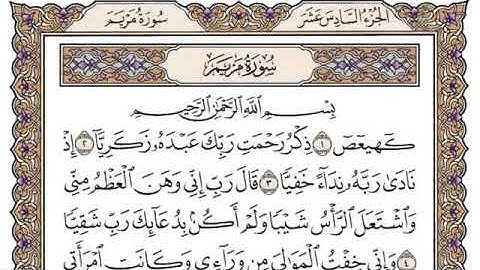 الجُزْءُ السَّادِسَ عَشَرَ
سُورَةُ مَرْيَمَ
سُورَةُ مَرْيَمَ
بِسْمِ اللَّهِ الرَّحْمَٰنِ الرَّحِيمِ
كٓهيعٓصٓ ١ ذِكْرُ رَحْمَتِ رَبِّكَ عَبْدَهُۥ زَكَرِيَّآ ٢ إِذْ
نَادَىٰ رَبَّهُۥ نِدَآءً خَفِيًّا ٣ قَالَ رَبِّ إِنِّى وَهَنَ ٱلْعَظْمُ مِنِّى
وَٱشْتَعَلَ ٱلرَّأْسُ شَيْبًا وَلَمْ أَكُنۢ بِدُعَآئِكَ رَبِّ شَقِيًّا
٤ وَإِنِّى خِفْتُ ٱلْمَوَٰلِىَ مِن وَرَآءِى وَكَانَتِ ٱمْرَأَتِى